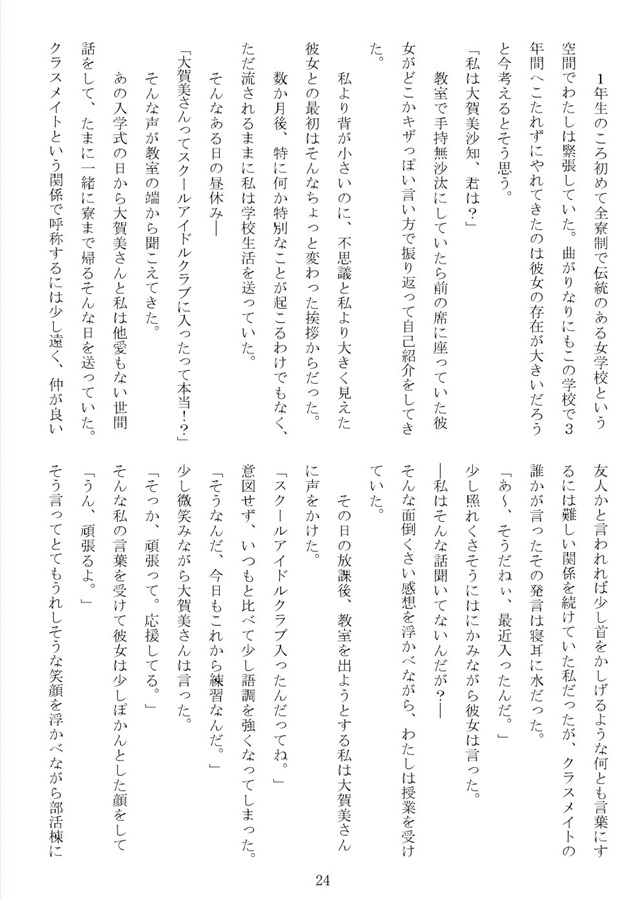 １年生のころ初めて全寮制で伝統のある女学校という
空間でわたしは緊張していた。曲がりなりにもこの学校で３
年間へこたれずにやれてきたのは彼女の存在が大きいだろう
と今考えるとそう思う。
「私は大賀美沙知、君は？」
教室で手持無沙汰にしていたら前の席に座っていた彼
女がどこかキザっぽい言い方で振り返って自己紹介をしてき
た。
私より背が小さいのに、不思議と私より大きく見えた
彼女との最初はそんなちょっと変わった挨拶からだった。
数か月後、特に何か特別なことが起こるわけでもなく、
ただ流されるままに私は学校生活を送っていた。
そんなある日の昼休み―
「大賀美さんってスクールアイドルクラブに入ったって本当！？」
そんな声が教室の端から聞こえてきた。
あの入学式の日から大賀美さんと私は他愛もない世間
話をして、たまに一緒に寮まで帰るそんな日を送っていた。
クラスメイトという関係で呼称するには少し遠く、仲が良い
友人かと言われれば少し首をかしげるような何とも言葉にす
るには難しい関係を続けていた私だったが、クラスメイトの
誰かが言ったその発言は寝耳に水だった。
「あ～、そうだねぃ、最近入ったんだ。」
少し照れくさそうにはにかみながら彼女は言った。
―私はそんな話聞いてないんだが？―
そんな面倒くさい感想を浮かべながら、わたしは授業を受け
ていた。
その日の放課後、教室を出ようとする私は大賀美さん
に声をかけた。
「スクールアイドルクラブ入ったんだってね。」
意図せず、いつもと比べて少し語調を強くなってしまった。
「そうなんだ、今日もこれから練習なんだ。」
少し微笑みながら大賀美さんは言った。
「そっか、頑張って。応援してる。」
そんな私の言葉を受けて彼女は少しぽかんとした顔をして
「うん、頑張るよ。」
そう言ってとてもうれしそうな笑顔を浮かべながら部活棟に
24